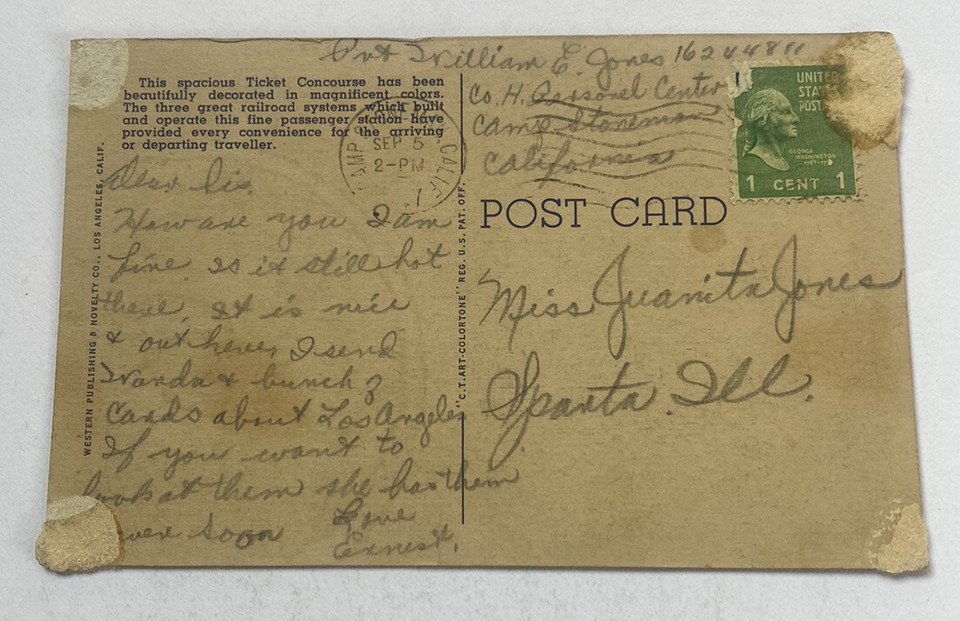 Pvt William E. Jones 16244811
Co. H. Personel Center
Camp Stoneman
California
This spacious Ticket Concourse has been
beautifully decorated in magnificent colors.
The three great railroad systems which built
and operate this fine passenger station have
provided every convenience for the arriving
or departing traveller.
CAMP
SEP 5
2-PM
CALIF.
UNITED
STAT
POST
GEORGE
WASHINGTON
1 CENT 1
POST CARD
Dear Sis.
How are you I am
fine. Is it still hot
there, It is nice
& out here, I send
Wanda a bunch of
cards about Los Angeles
If you want to
look at them she has them
soon
Love
Ernest.
Miss Juanita Jones
Sparta. Ill.
WESTERN PUBLISHING & NOVELTY CO., LOS ANGELES, CALIF.
"C.T. ART-COLORTONE" REG. U.S. PAT. OFF.